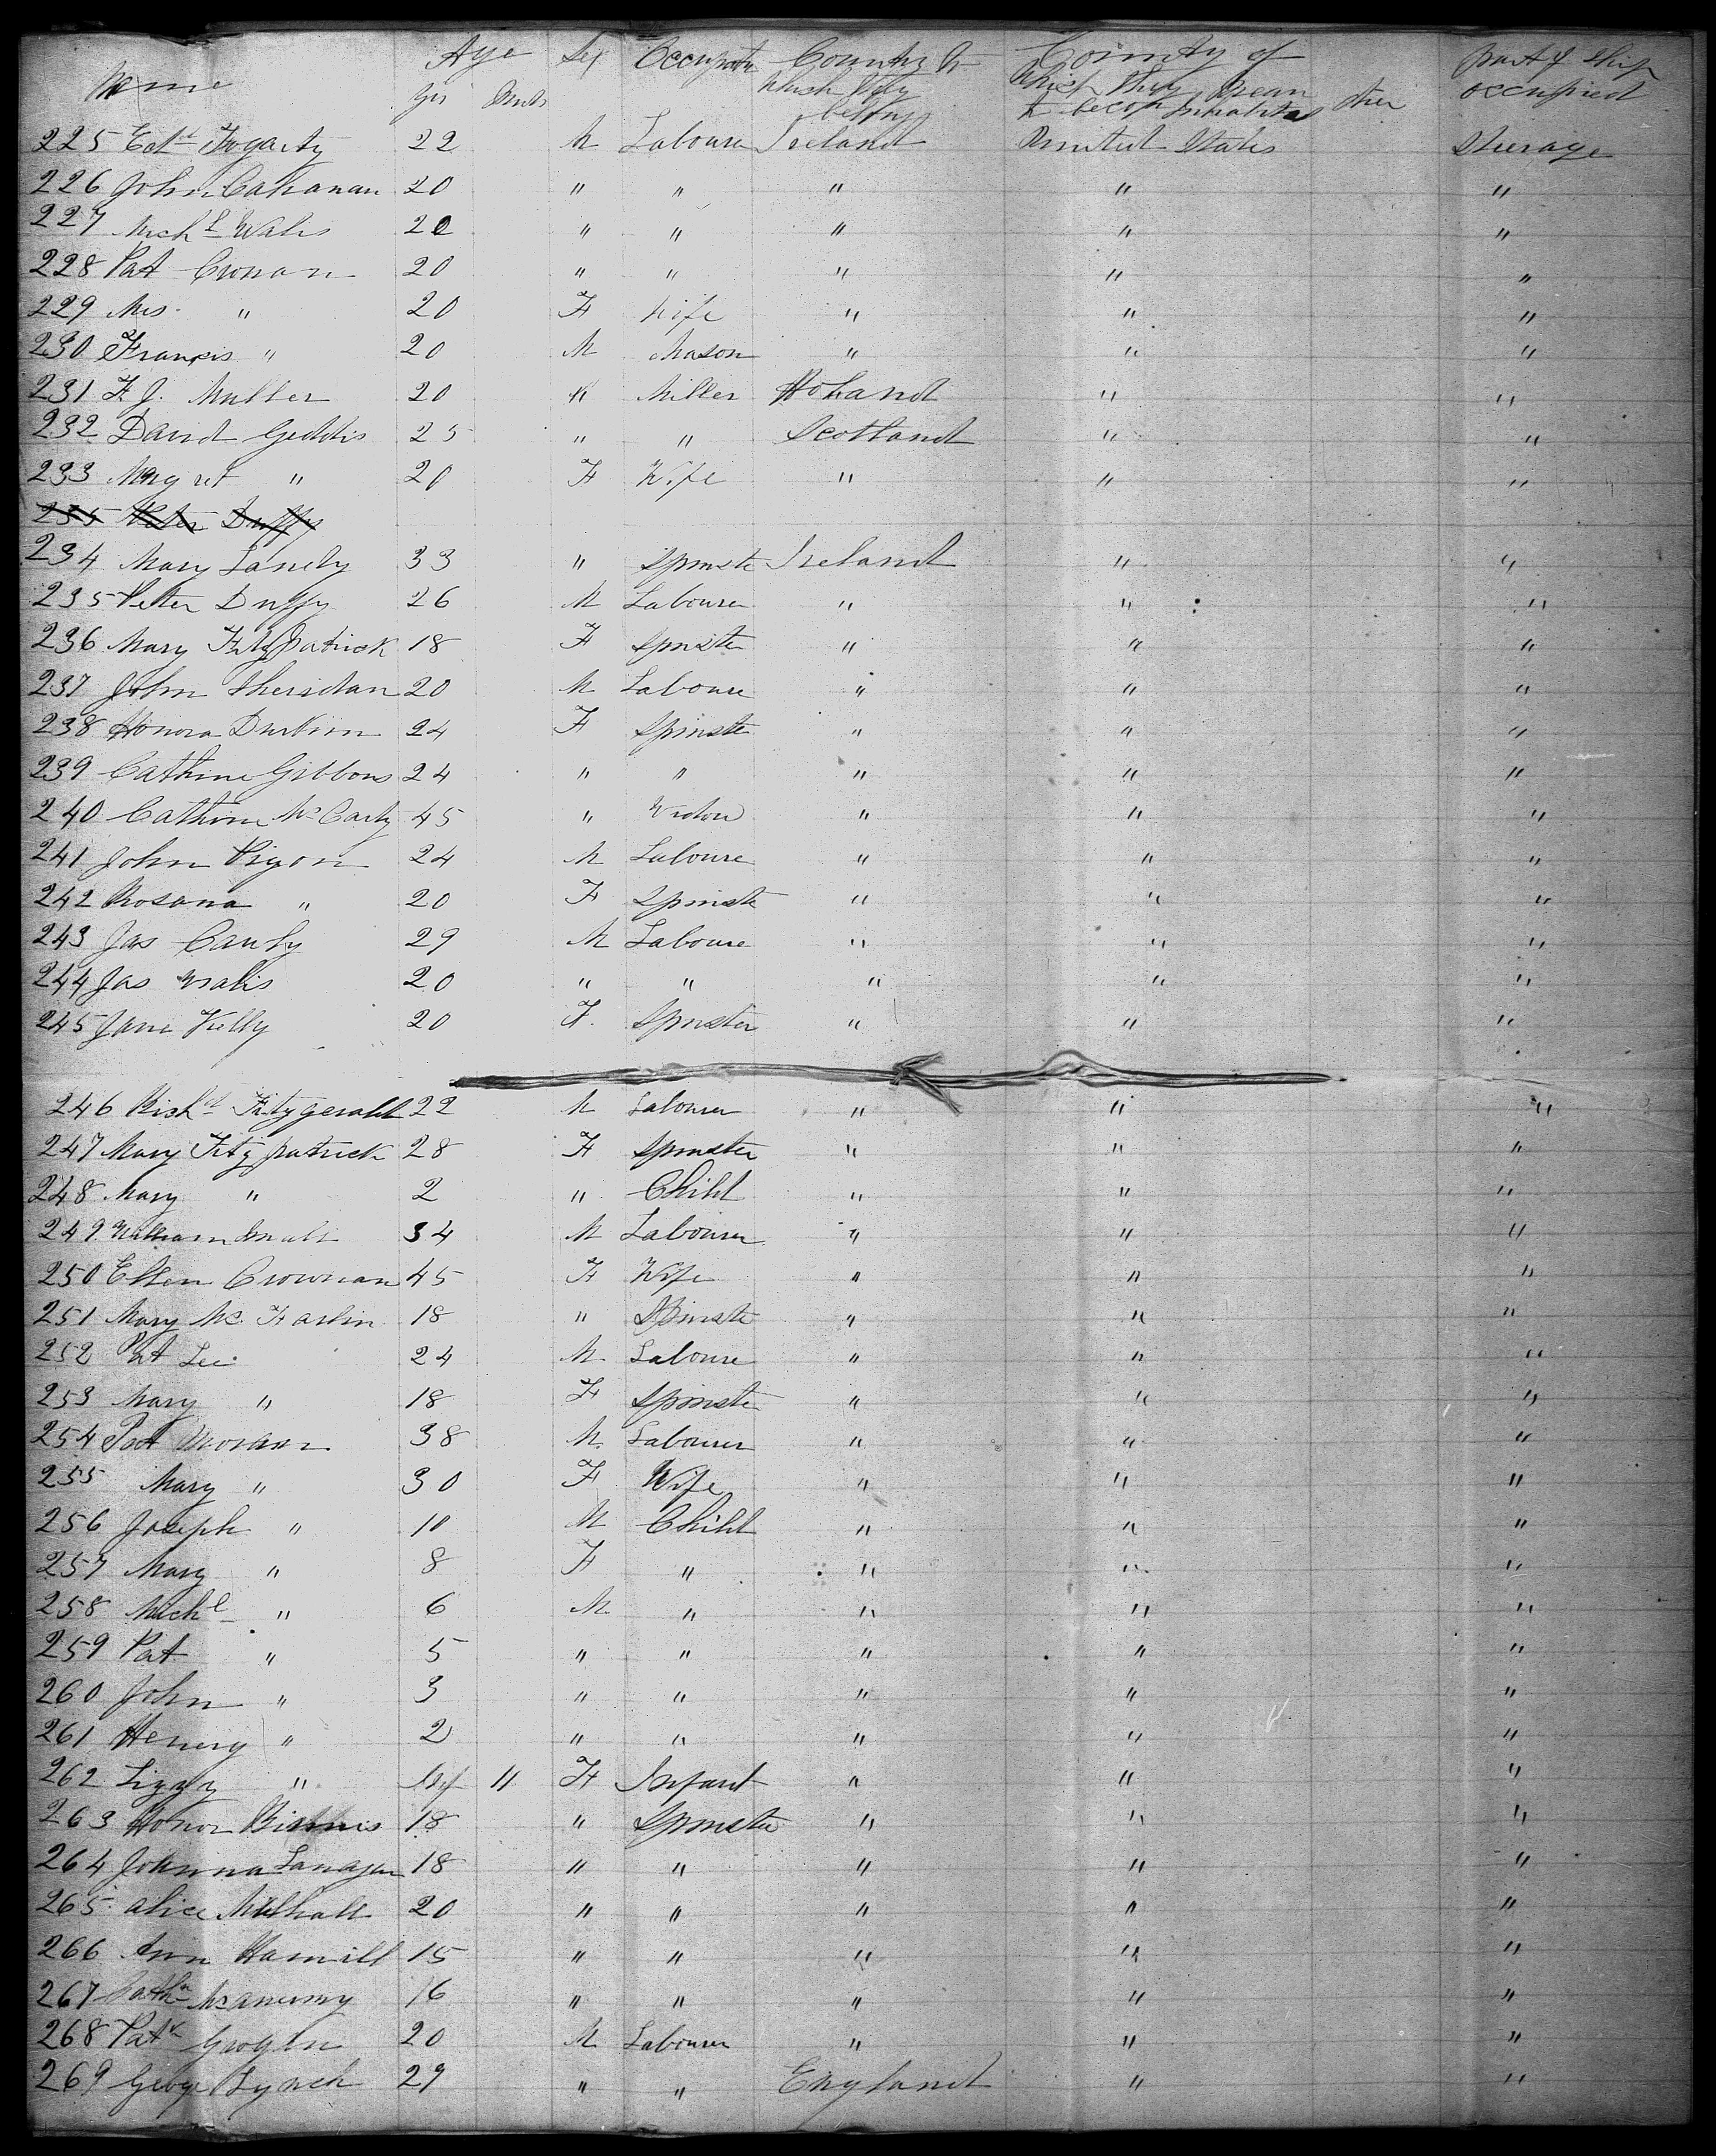 Name Age Sex Occupatn Country to County of part of Ship
yrs Mnths which they Which they mean occupied
belong to becom Inhabitants other
225 Edd Fogarty 22 M Laboure Ireland United States Steerage
226 John Cahanan 20 " " " " "
227 Michl Walis 20 " " " " "
228 Pat Cronan 20 " " " " "
229 Mrs " 20 F Wife " " "
230 Francis " 20 M Mason " " "
231 F. J. Muller 20 M Miller Holand " "
232 David Geddis 25 " " Scotland " "
233 Margret " 20 F Wife " " "
235 Peter Duffy
234 Mary Landy 33 " Spinste Ireland " "
235 Peter Duffy 26 M Laboure " " "
236 Mary Fitzpatrick 18 F Spinster " " "
237 John Sheridan 20 M Laboure " " "
238 Honora Durkin 24 F Spinste " " "
239 Cathine Gibbons 24 " " " " "
240 Cathine McCarty 45 " Widow " " "
241 John Pigon 24 M Laboure " " "
242 Rosana " 20 F Spinste " " "
243 Jas Canty 29 M Laboure " " "
244 Jas Walis 20 " " " " "
245 Jane Kelly 20 F. Spinster " " "
246 Richd Fitzgerald 22 M Labourer " " "
247 Mary Fitzpatrick 28 F Spinster " " "
248 Mary " 2 " Child " " "
249 William 34 M Labourer " " "
250 Ellen Crownan 45 F Wife " " "
251 Mary Mc Farlin 18 " Spinste " " "
252 Pat Lee 24 M. Laboure " " "
253 Mary " 18 F Spinster " " "
254 Pat Moran 38 M. Labourer " " "
255 Mary " 30 F Wife " " "
256 Joseph " 10 M Child " " "
257 Mary " 8 F " " " "
258 Michl " 6 M. " " " "
259 Pat " 5 " " " " "
260 John " 3 " " " " "
261 Henery " 2 " " " " "
262 Lizzy " Inf 11 F Infant " " "
263 Honor 18 " Spinster " " "
264 Johnna Lanagan 18 " " " " "
265 Alice Mulhall 20 " " " " "
266 Ann Hamill 15 " " " " "
267 16 " " " " "
268 Patk Grogan 20 M Labourer " " "
269 George Lynch 29 " " England " "